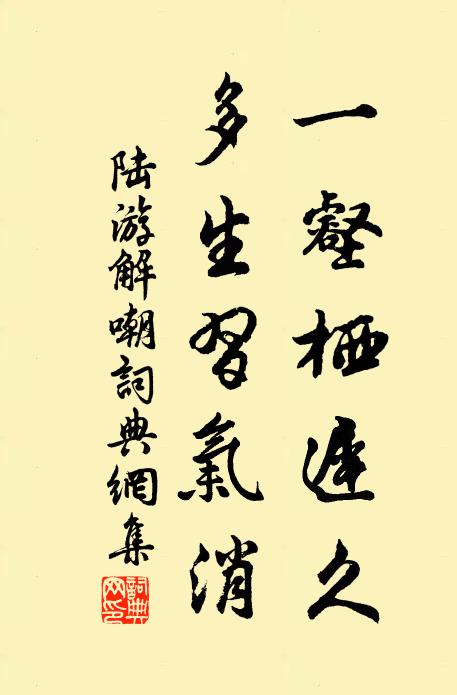 一壑栖遲久
多生習氣消
陆游解嘲詞典網集
詞典网印